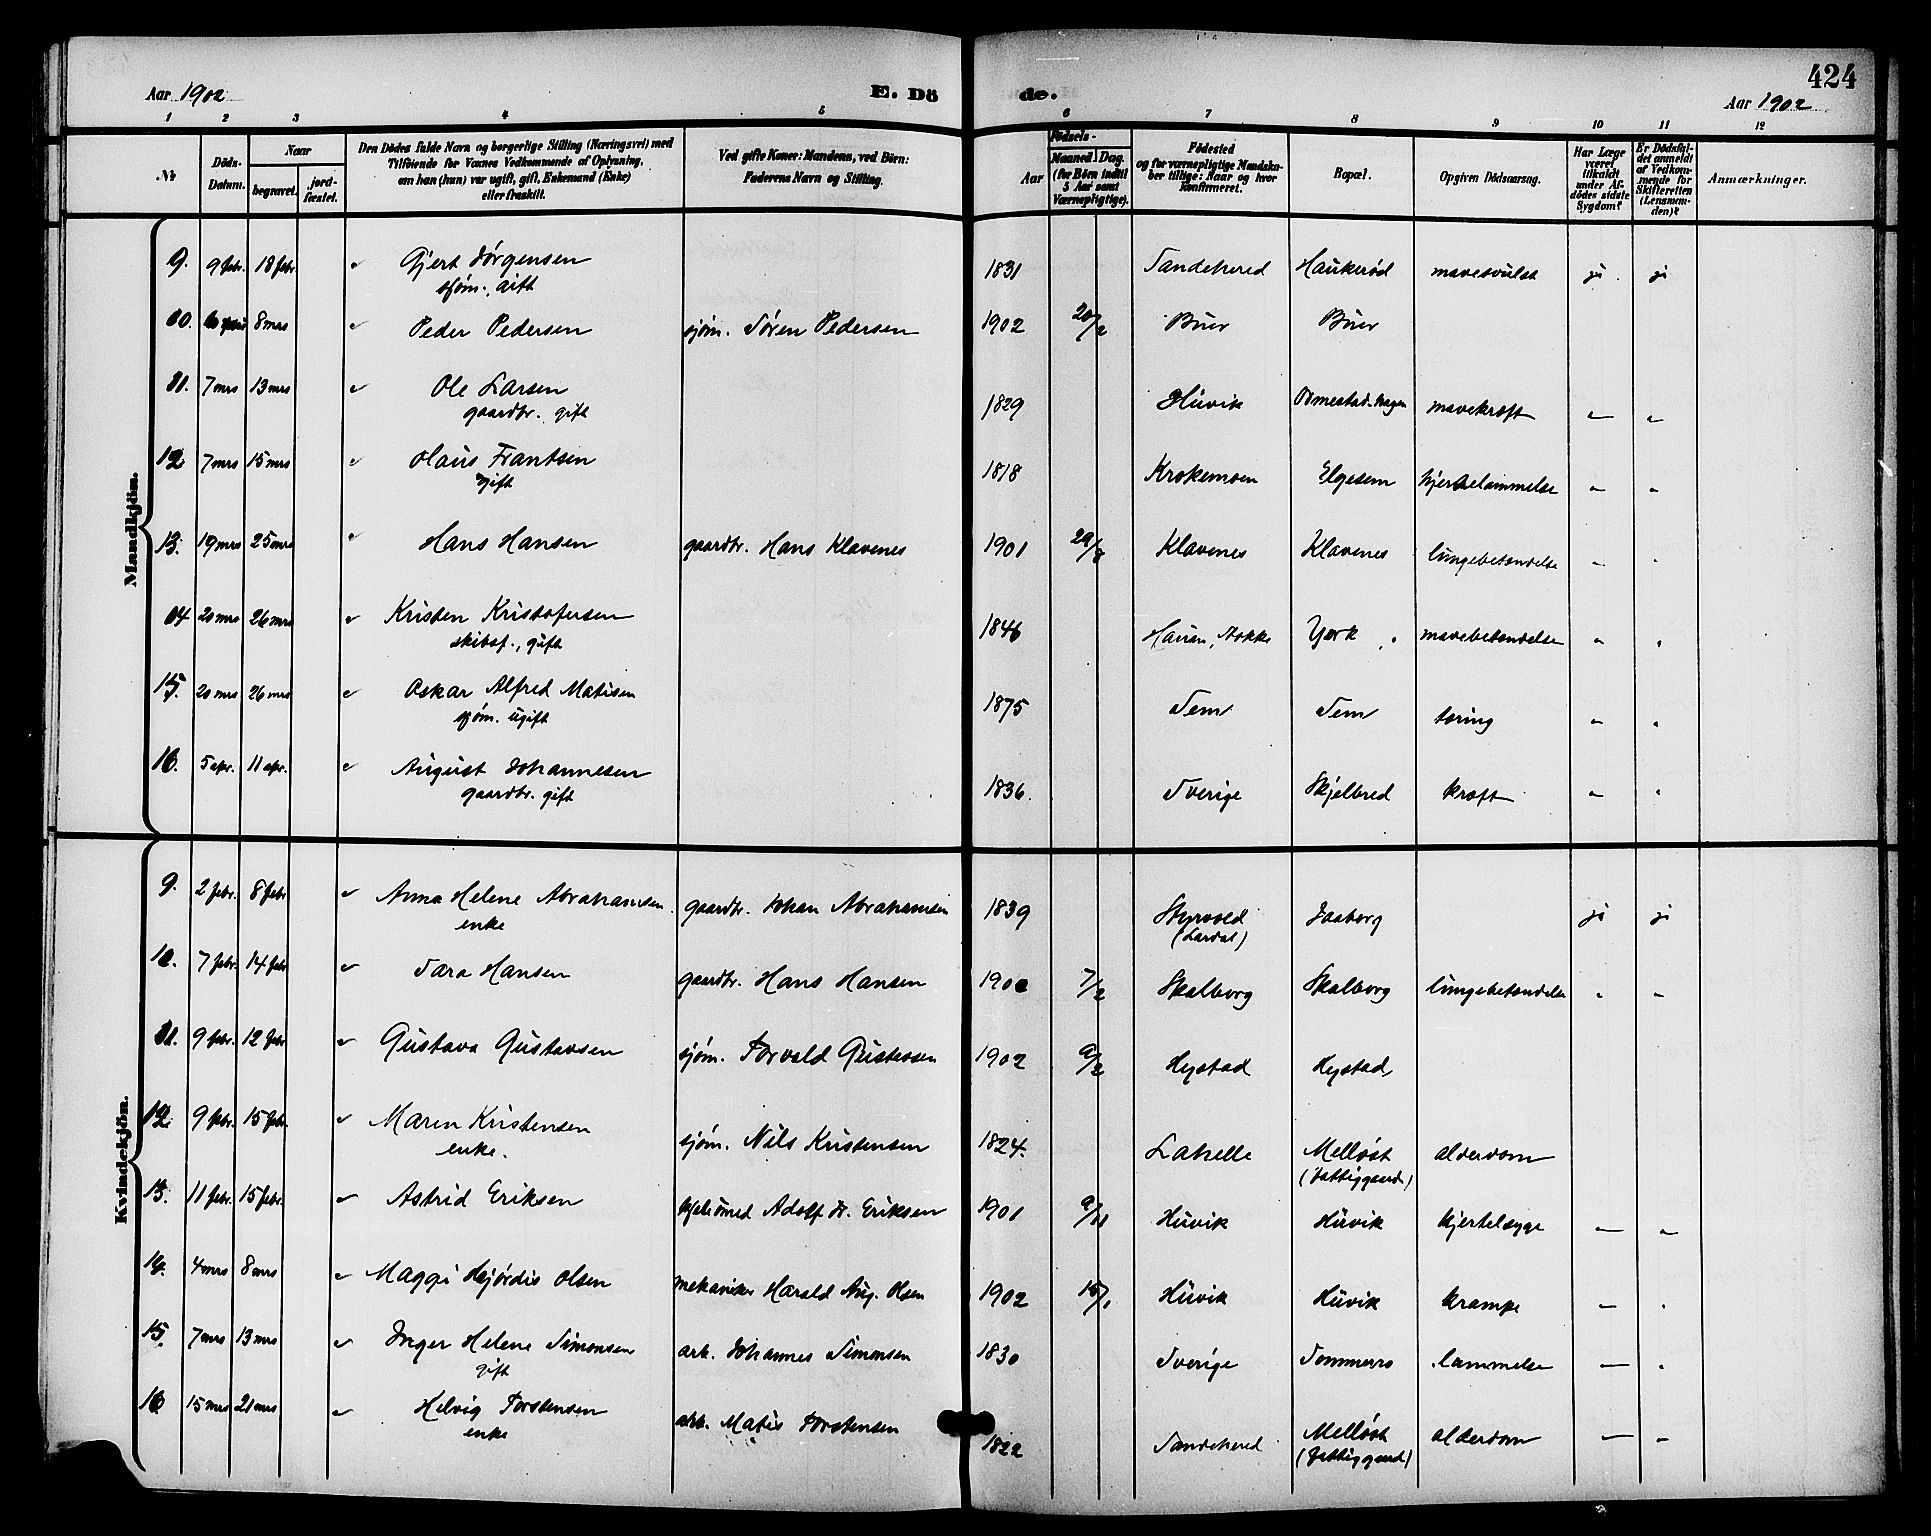 424
Aar 1902
E. Dö
de.
Aar 1902
1 2 3 4 5 6 7 8 9 10 11 12
№
Döds-
Datum.
Naar
begravet.
jord-
fæstet.
Den Dödes fulde Navn og borgerlige Stilling (Næringsvei) med
Tilföiende for Voxnes Vedkommende af Oplysning,
om han (hun) var ugift, gift, Enkemand (Enke)
eller fraskilt.
Ved gifte Koner: Mandens, ved Börn:
Faderens Navn og Stilling.
Aar
Födsels-
Maaned. Dag.
(for Börn indtil
5 Aar samt
Værnepligtige).
Födested
og for værnepligtige Mandskа-
ber tillige: Naar og hvor
Konfirmeret.
Bopæl.
Opgiven Dödsaarsag.
Har Læge
været
tilkaldt
under Af-
dödes sidste
Sygdom?
Er Dödsfal-
det anmeldt
af Vedkom-
mende for
Skifteretten
(Lensman-
den)?
Anmærkninger.
Mandkjön.
9. 9 febr. 18 febr. Gjert Jörgensen 1831 Sandeherred Haukeröd mavesvulst ja ja
sjöm., gift
10. 8 mrs Peder Pedersen sjöm. Sören Pedersen 1902 20/2 Buer Buer
11. 7 mrs 13 mrs Ole Larsen 1829 Huvik mavekræft " "
gaardbr. gift
12 7 mrs 15 mrs Olaus Frantsen 1818 Krokemoen Elgesem hjertelammelse " "
gift
13. 19 mrs 25 mrs Hans Hansen gaardbr. Hans Klavenes 1901 29/8 Klavenes Klavenes lungebetændelse " "
14 20 mrs 26 mrs Kristen Kristofersen 1846 Stokke York mavebetændelse " "
skibsf., gift
15. 20 mrs 26 mrs Oskar Alfred Matisen 1875 Sem Sem tæring " "
sjöm. ugift
16. 5 apr. 11 apr. August Johannesen 1836. Sverige Skjelbred kræft " "
gaardbr. gift
Kvindekjön.
9. 2 febr. 8 febr Anna Helene Abrahamsen gaardbr. Johan Abrahamsen 1839 Styrvold Faaborg ja ja
enke (Lardal)
10. 7 febr. 14 febr Sara Hansen gaardbr. Hans Hansen 1900 7/2 Skalborg Skalborg lungebetændelse " "
11. 9 febr. 12 febr Gustava Gustavsen sjöm. Torvald Gustavsen 1902 9/2 Hystad Hystad
12. 9 febr. 15 febr. Maren Kristensen sjöm. Nils Kristensen 1824. Lahelle Melløst alderdom
enke. (Fattiggaard)
13. 11 febr. 15 febr. Astrid Eriksen Adolf Fr. Eriksen 1901 9/11 Huvik Huvik kjertelsyge " "
14. 4 mrs 8 mrs Maggi Hjördis Olsen mekaniker Harald Aug. Olsen 1902 15/1 Huvik Huvik krampe " "
15. 7 mrs 13 mrs Inger Helene Simonsen arb. Johannes Simonsen 1830 Sverige Sommerro lammelse " "
gift
16 15 mrs 21 mrs Helvig Torstensen arb. Matis Torstensen 1822 Sandeherred Melløst alderdom " "
enke (Fattiggaard)